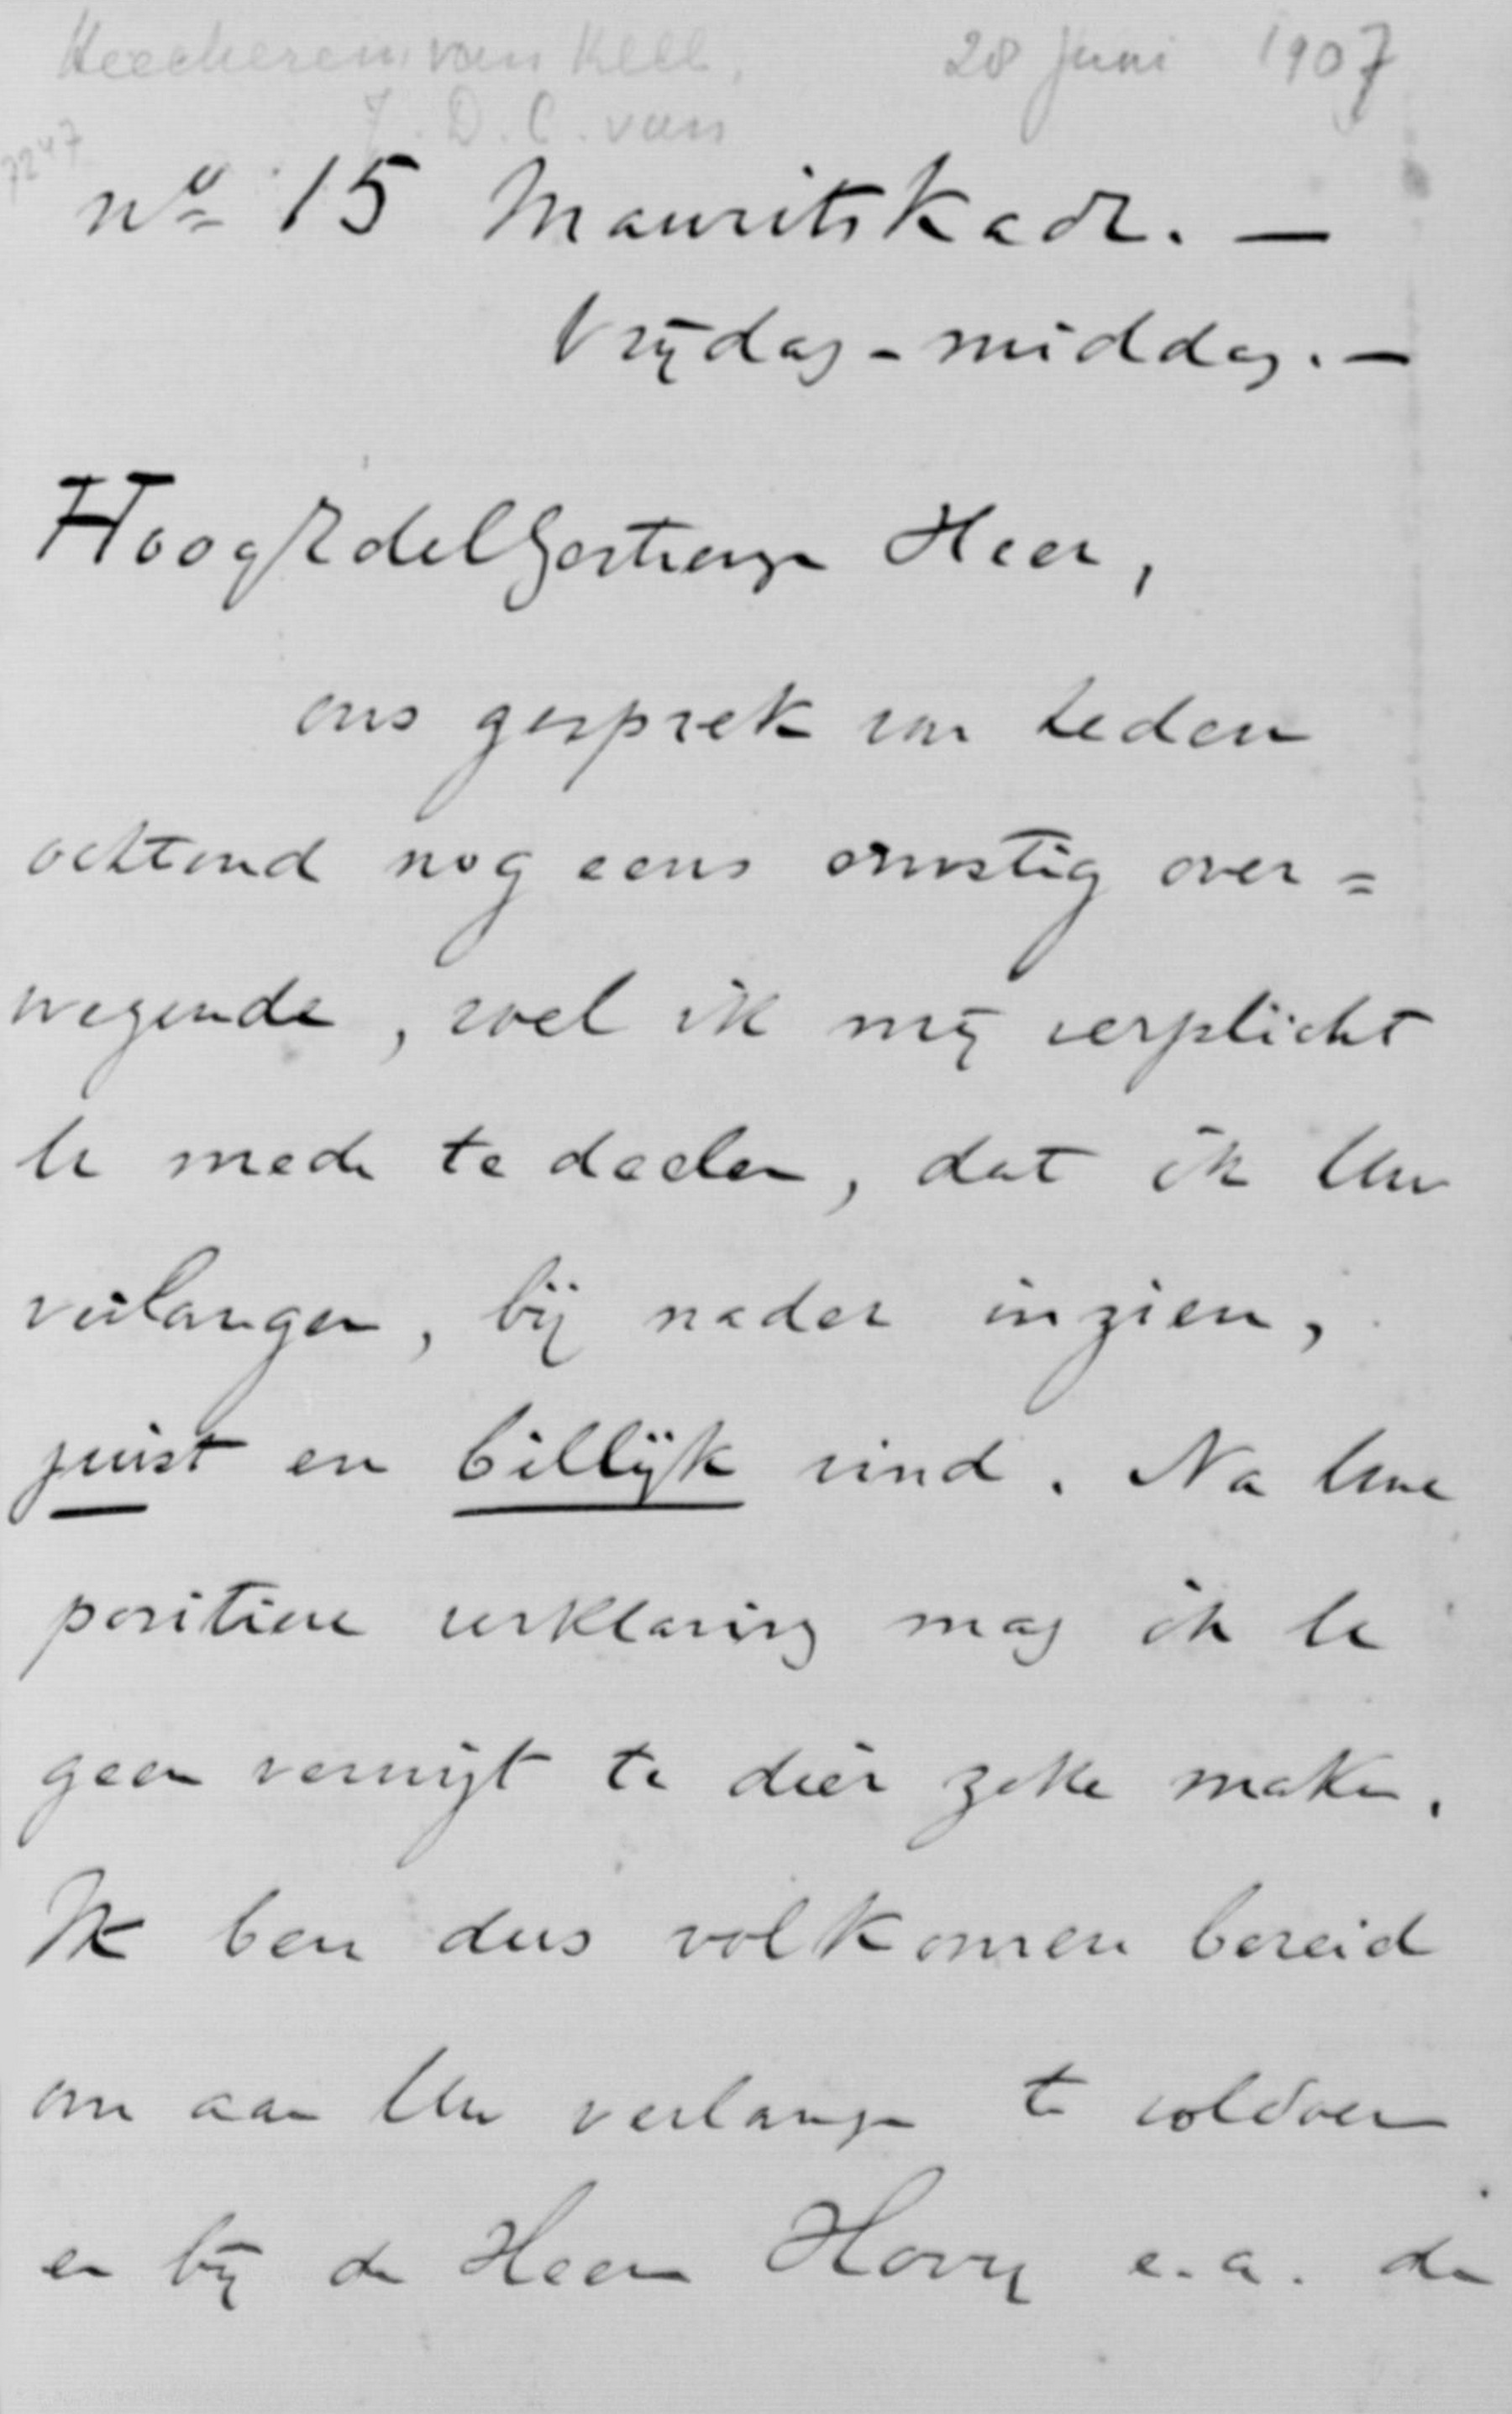 Heeckeren van Kell, 28 Juni 1907
J. D. C. van
7247
no 15 Mauritskade. —
Vrijdag-middag. —
HoogEdelGestrenge Heer,
ons gesprek van heden
ochtend nog eens ernstig over=
wegende, voel ik mij verplicht
U mede te deelen, dat ik Uw
verlangen, bij nader inzien,
juist en billijk vind. Na Uwe
positieve verklaring mag ik U
geen verwijt te dier zake maken.
Ik ben dus volkomen bereid
om aan Uw verlangen te voldoen
en bij de Heeren Hovy e.a. de